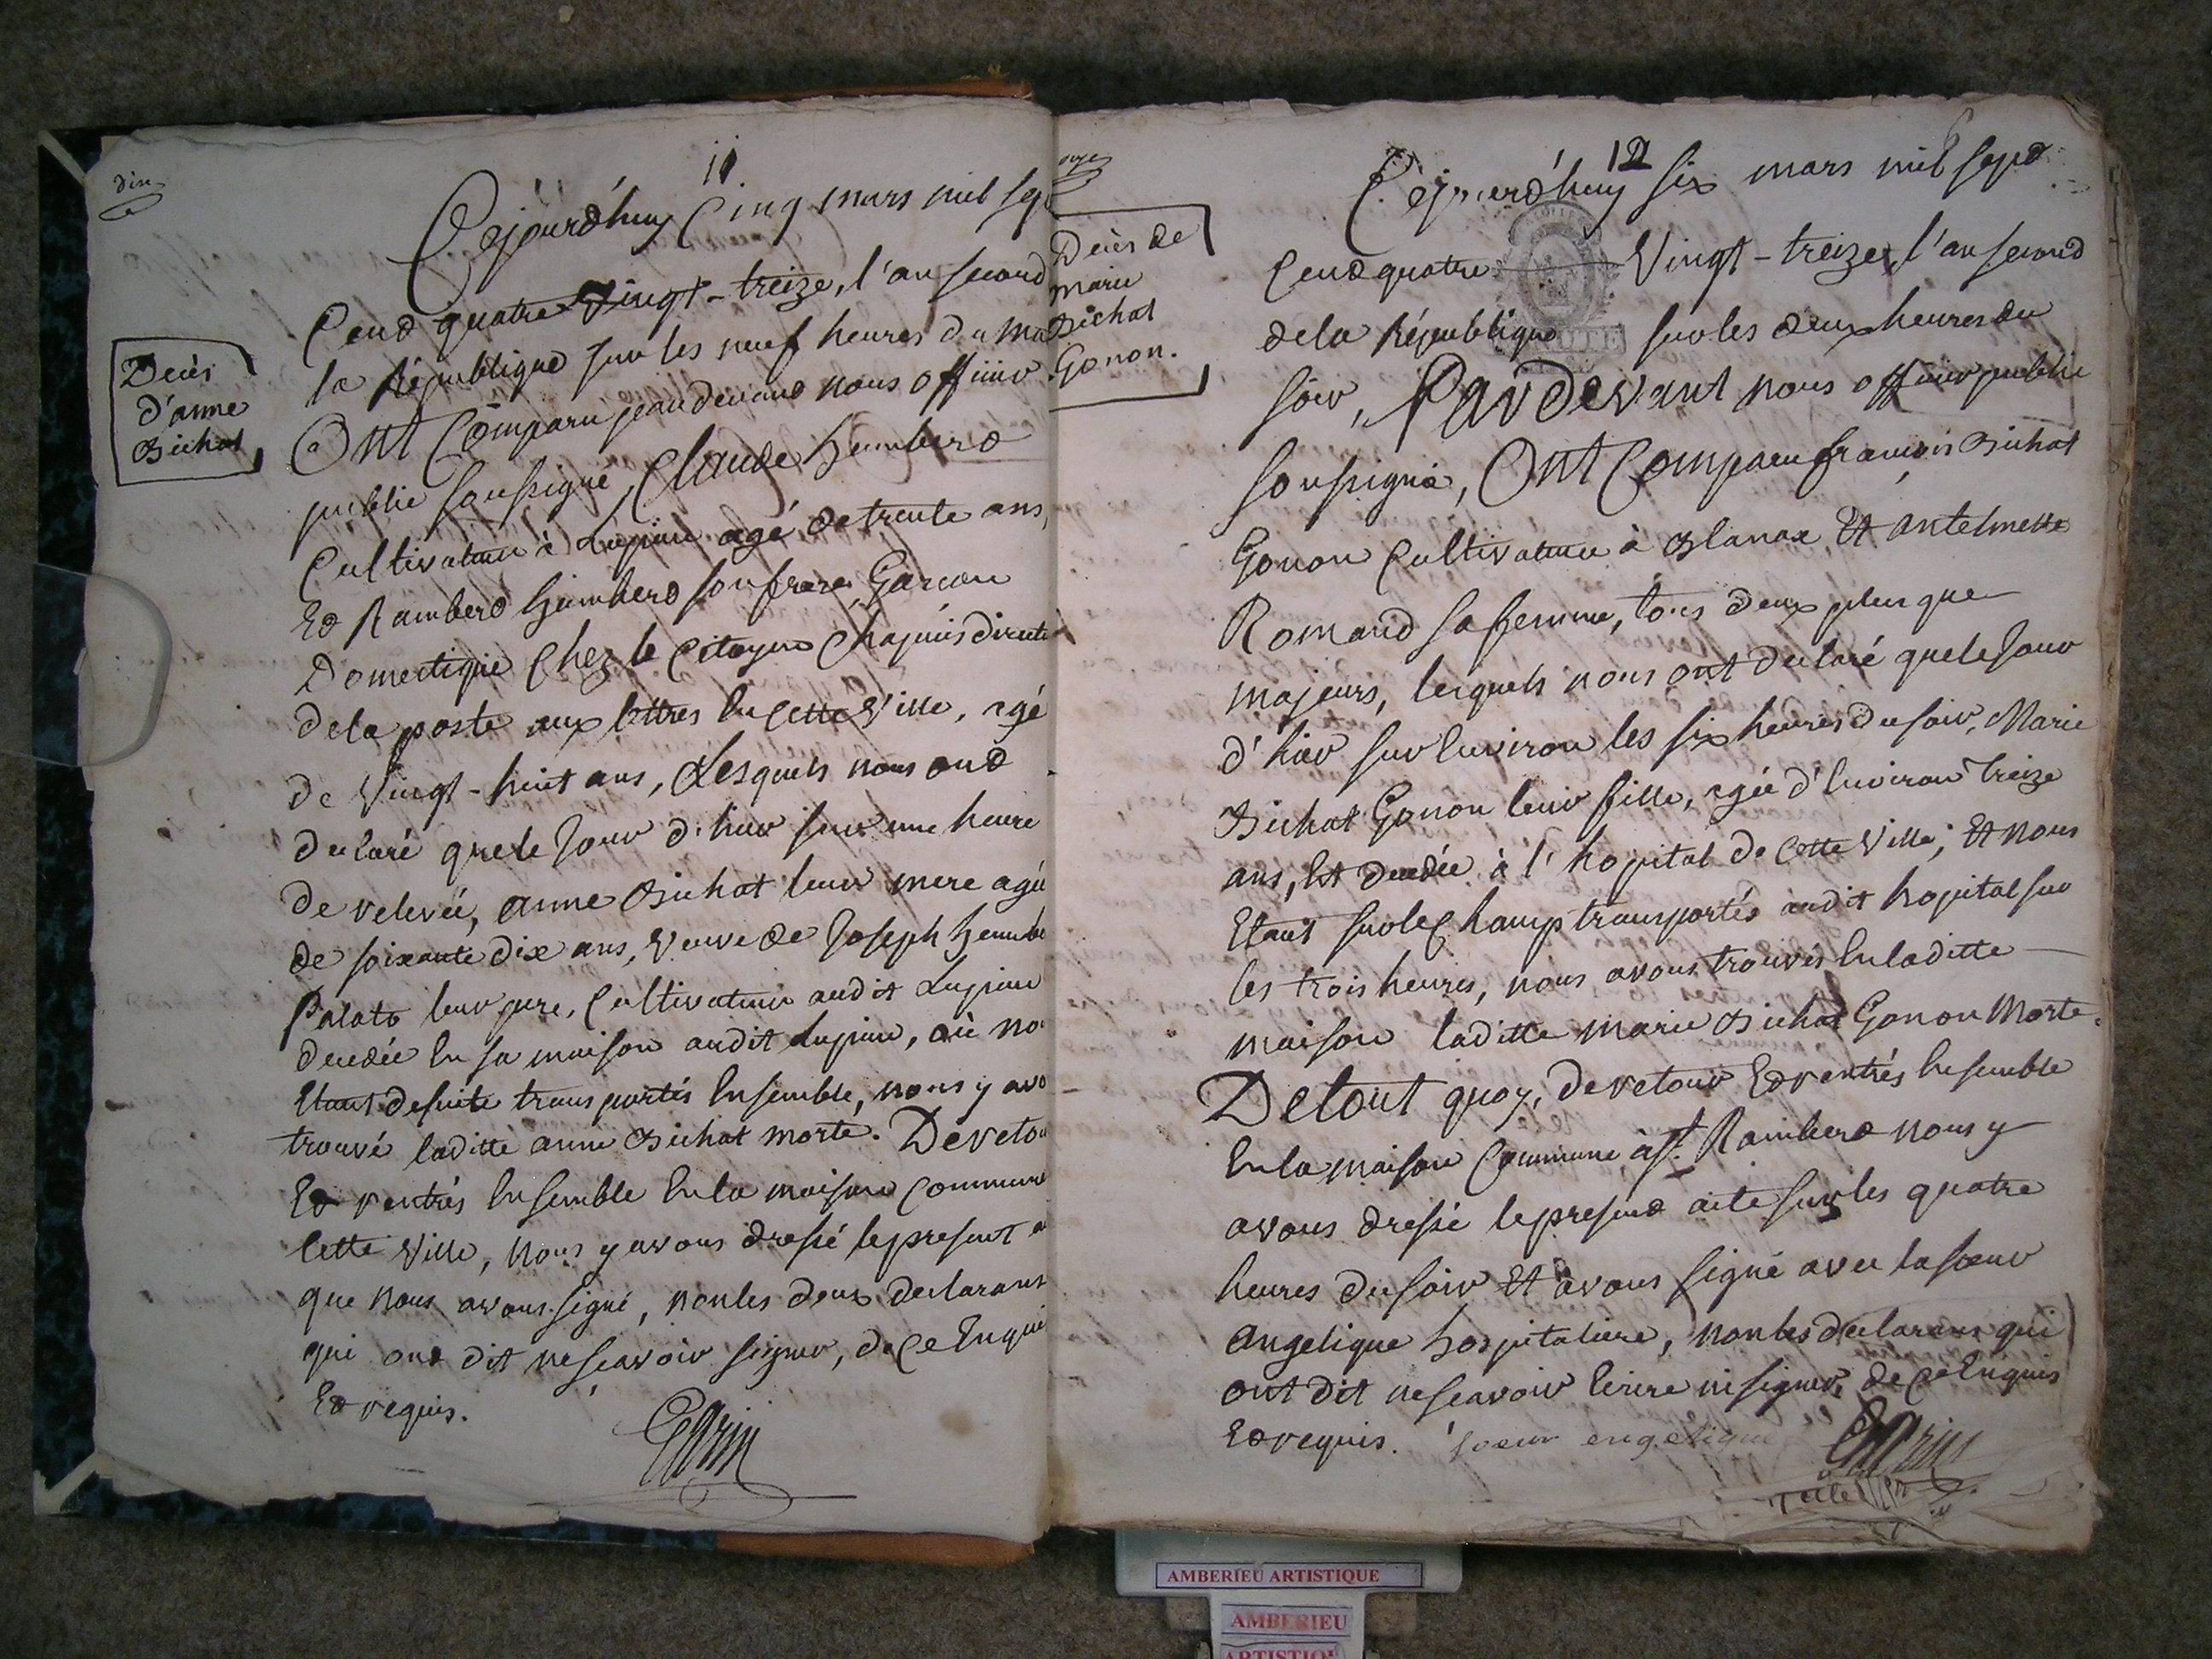 dix
11
Cejourd'huy Cinq mars mil sept
Cend quatre Vingt-treize, l'an second
la République sur les neuf heures du ma
Ont Comparu pardevand nous officier
public soussigné, Claude humberd
Cultivateur à Lupieu agé de trente ans,
Ed Ramberd humberd son frere, Garcon
Domectique Chez le Citoyen Chapuis directe
de la poste aux lettres en Cette Ville, agé
de Vingt-huit ans, Lesquels nous ond
declaré que le Jour d'hier sur une heure
de relevée, anne Bichat leur mere agée
de soixante dix ans, Veuve de Joseph humbe
leur pere, Cultivateur audit Lupieu
decedée En sa maison audit Lupieu, où no
Etant de suite transportés Ensemble, nous y avo
trouvé laditte anne Bichat morte. De retou
Ed rentrés Ensemble En la maison Commune
Cette Ville, Nous y avons dressé le present a
que nous avons signé, non les deux declarans
qui ond dit ne scavoir signer, de Ce Enqui
Ed requis.
Garin
Decès
d'anne
Bichat
onze
12
Cejourd'huy six mars mil sept
Cend quatre Vingt-treize, l'an second
de la République sur les deux heures du
soir, Pardevant nous officier public
soussigné, Ont Comparu françois Bichat
Gonon Cultivateur à Blanax Et antelmette
Romand sa femme, tous deux plus que
majeurs, lesquels nous ont declaré que le Jour
d'hier sur Environ les six heures du soir, Marie
Bichat Gonon leur fille, agée d'Environ treize
ans, Est decedée à l'hopital de Cette Ville; Et nous
Etant sur le Champ transportés audit hopital sur
les trois heures, nous avons trouvés En laditte
maison laditte marie Bichat Gonon Morte.
De tout quoy, de retour Ed rentrés Ensemble
En la maison Commune à st. Ramberd nous y
avons dressé le presend acte sur les quatre
heures du soir Et avons signé avec la soeur
Angelique hospitaliere, non les declarans qui
ont dit ne scavoir Ecrire ni signer, de Ce Enquis
Ed requis. soeur engelique Garin
Decès de
marie
Bichat
Gonon.
AMBERIEU ARTISTIQUE
AMBERIEU
ARTISTIQU